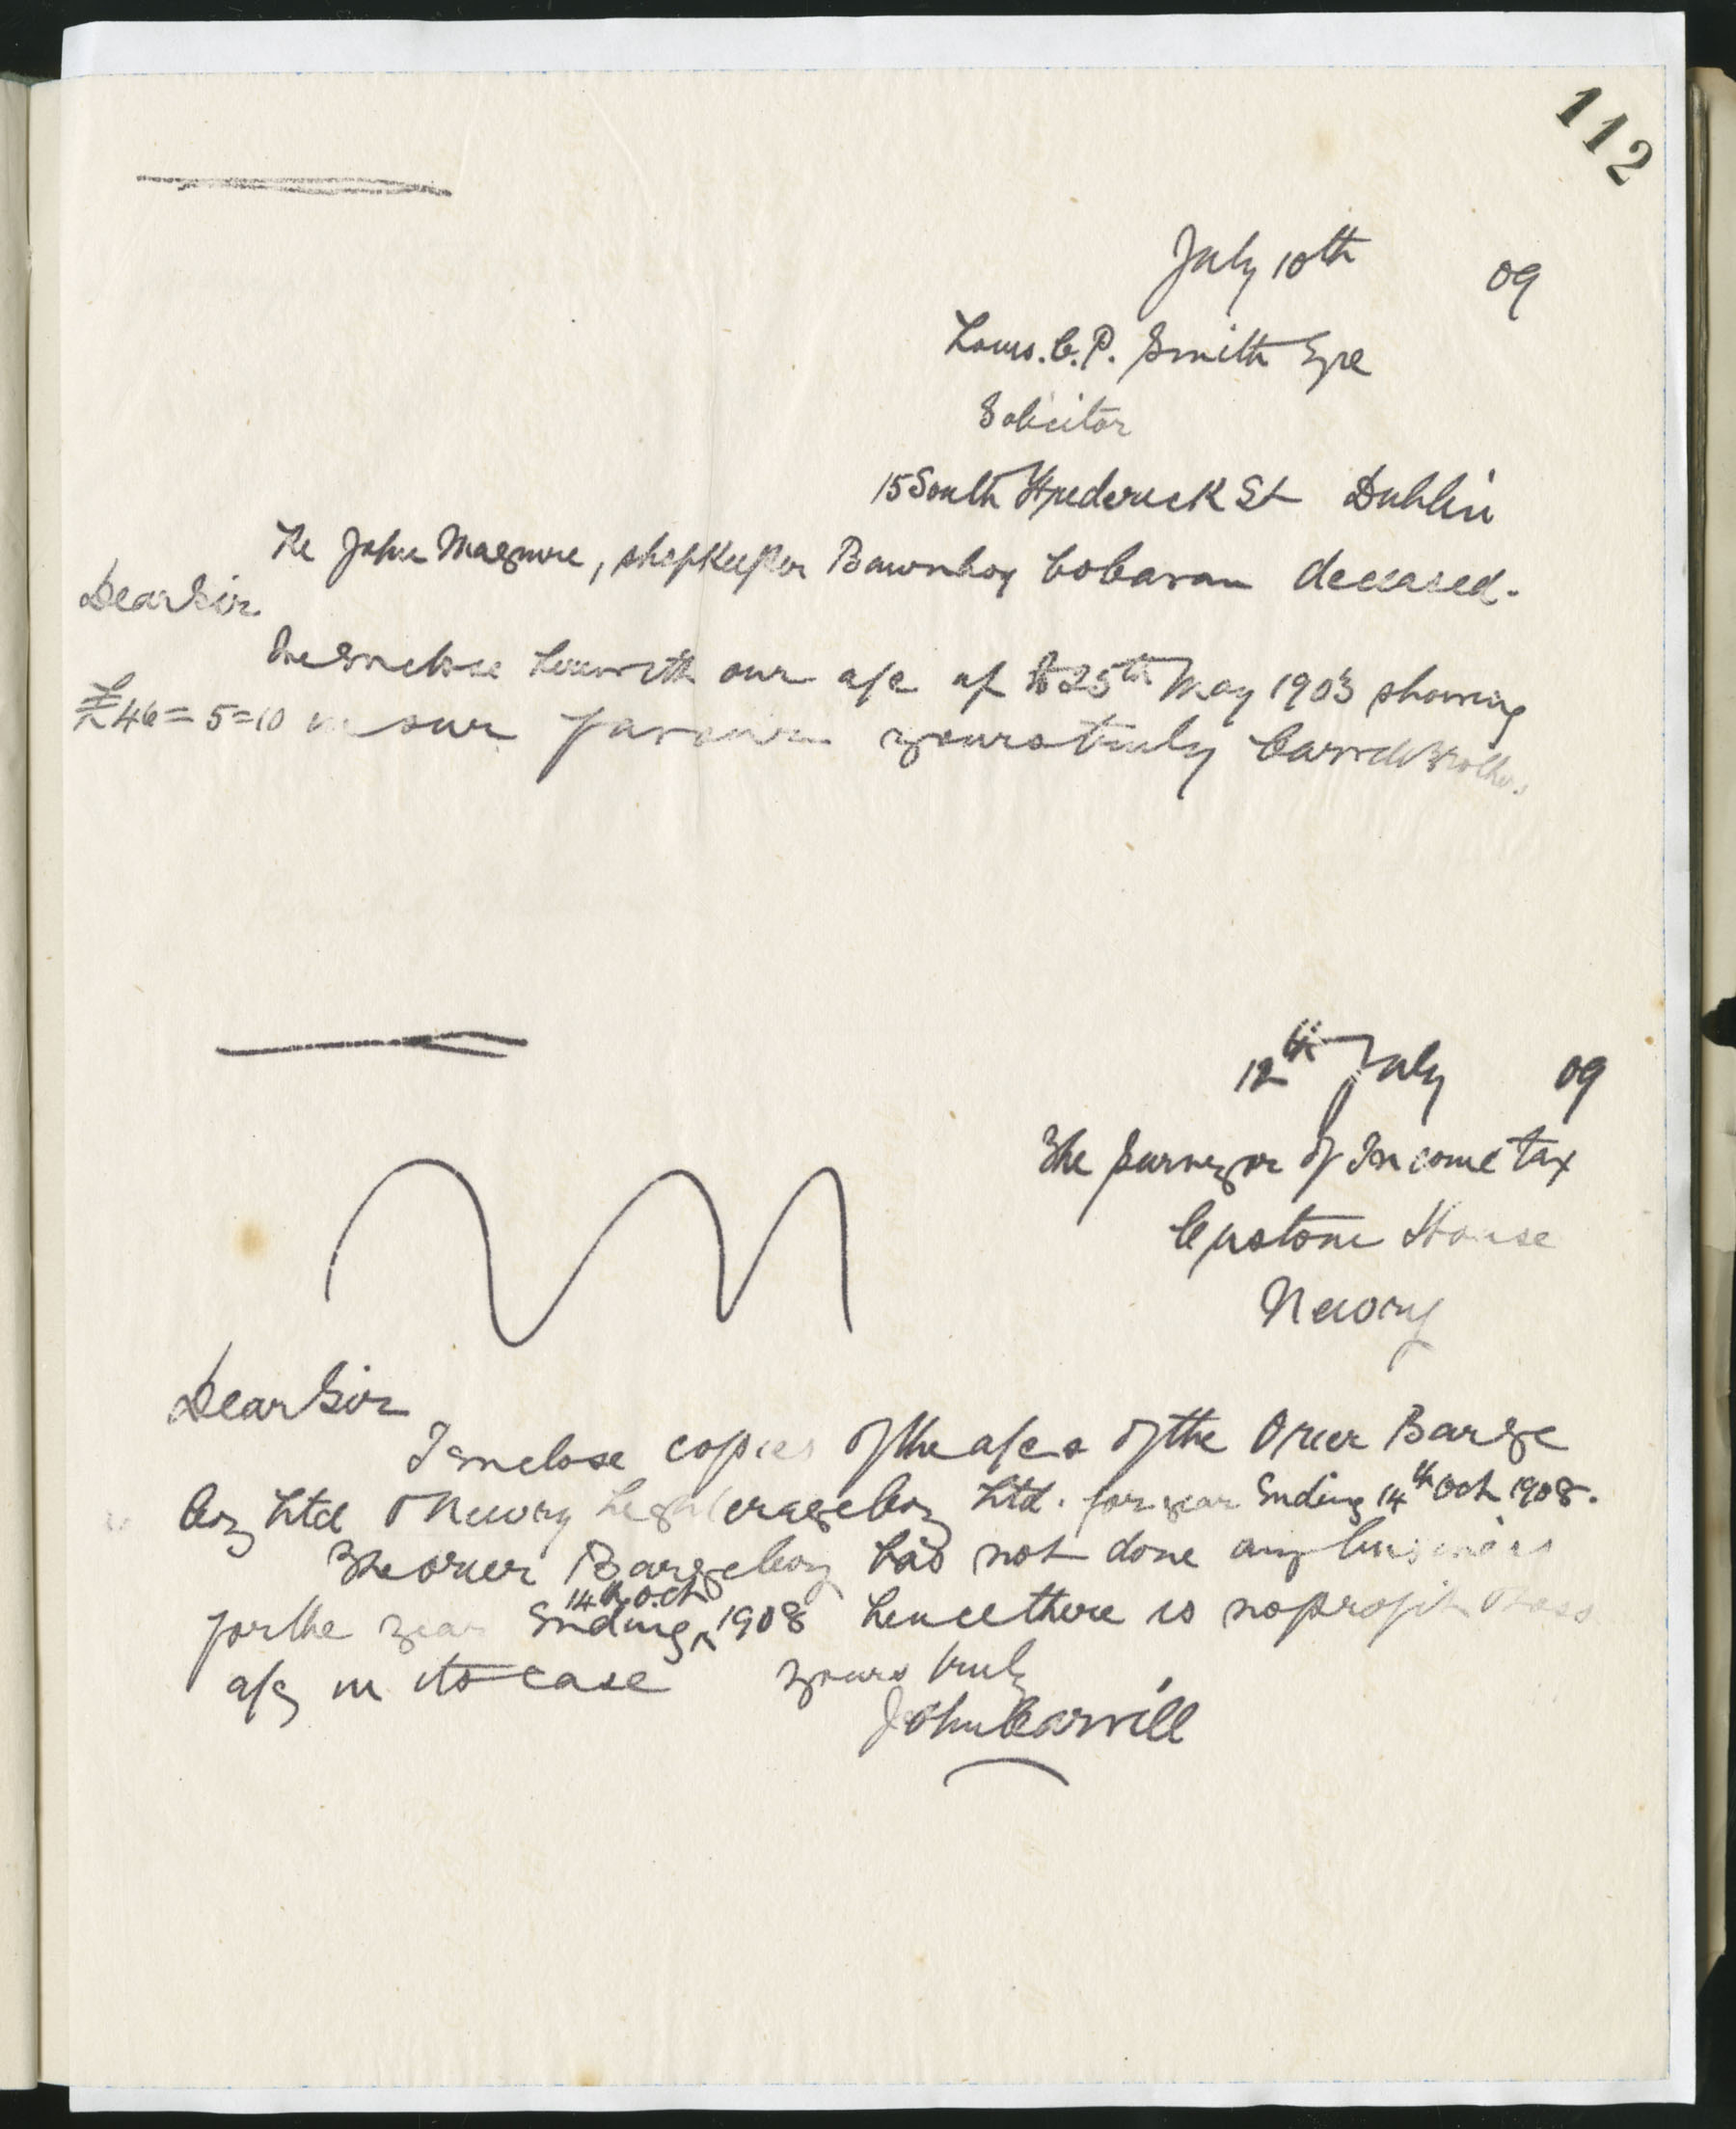 112
July 10th 09
Louis. C. P. Smith Esqre
Solicitor
15 South Frederick St Dublin
Re John Maguire, shopkeeper Bawnboy Co Cavan deceased.
Dear Sir
We enclose herewith our a/c up to 25th May 1903 showing
£46=5=10 in our favour yours truly Carvill Brothers
12th July 09
The Surveyor of Income tax
Custom House
Newry
Dear Sir
I enclose copies of the a/cs of the Orier Barge
Coy Ltd & Newry Lighterage Coy Ltd. for year Ending 14th Oct 1908.
The Orier Barge Coy has not done any business
for the year Ending 14th Oct 1908 hence there is no profit & loss
a/c in its case yours truly
John Carvill